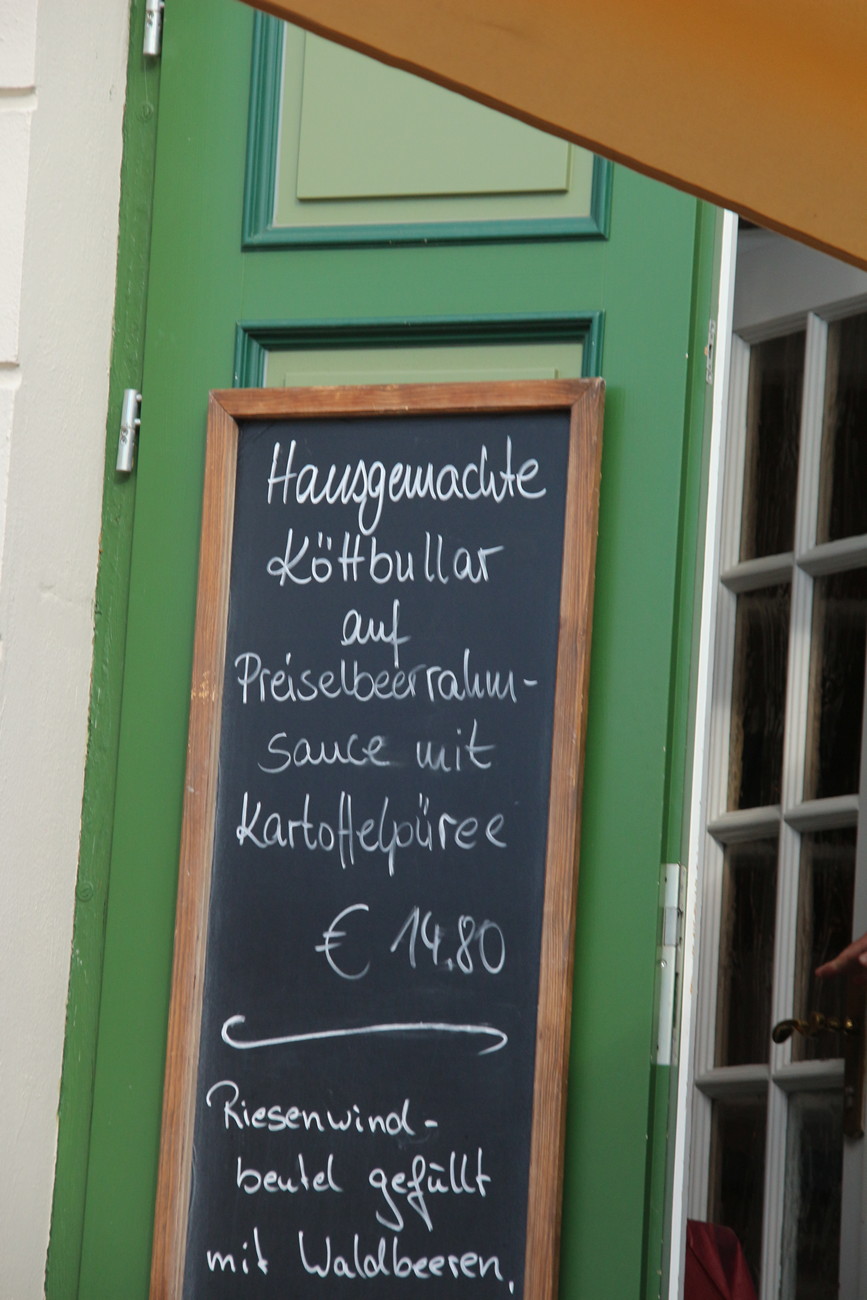 Hausgemachte
Köttbullar
auf
Preiselbeerrahm-
sauce mit
Kartoffelpüree
€ 14.80
Riesenwind-
beutel gefüllt
mit Waldbeeren,